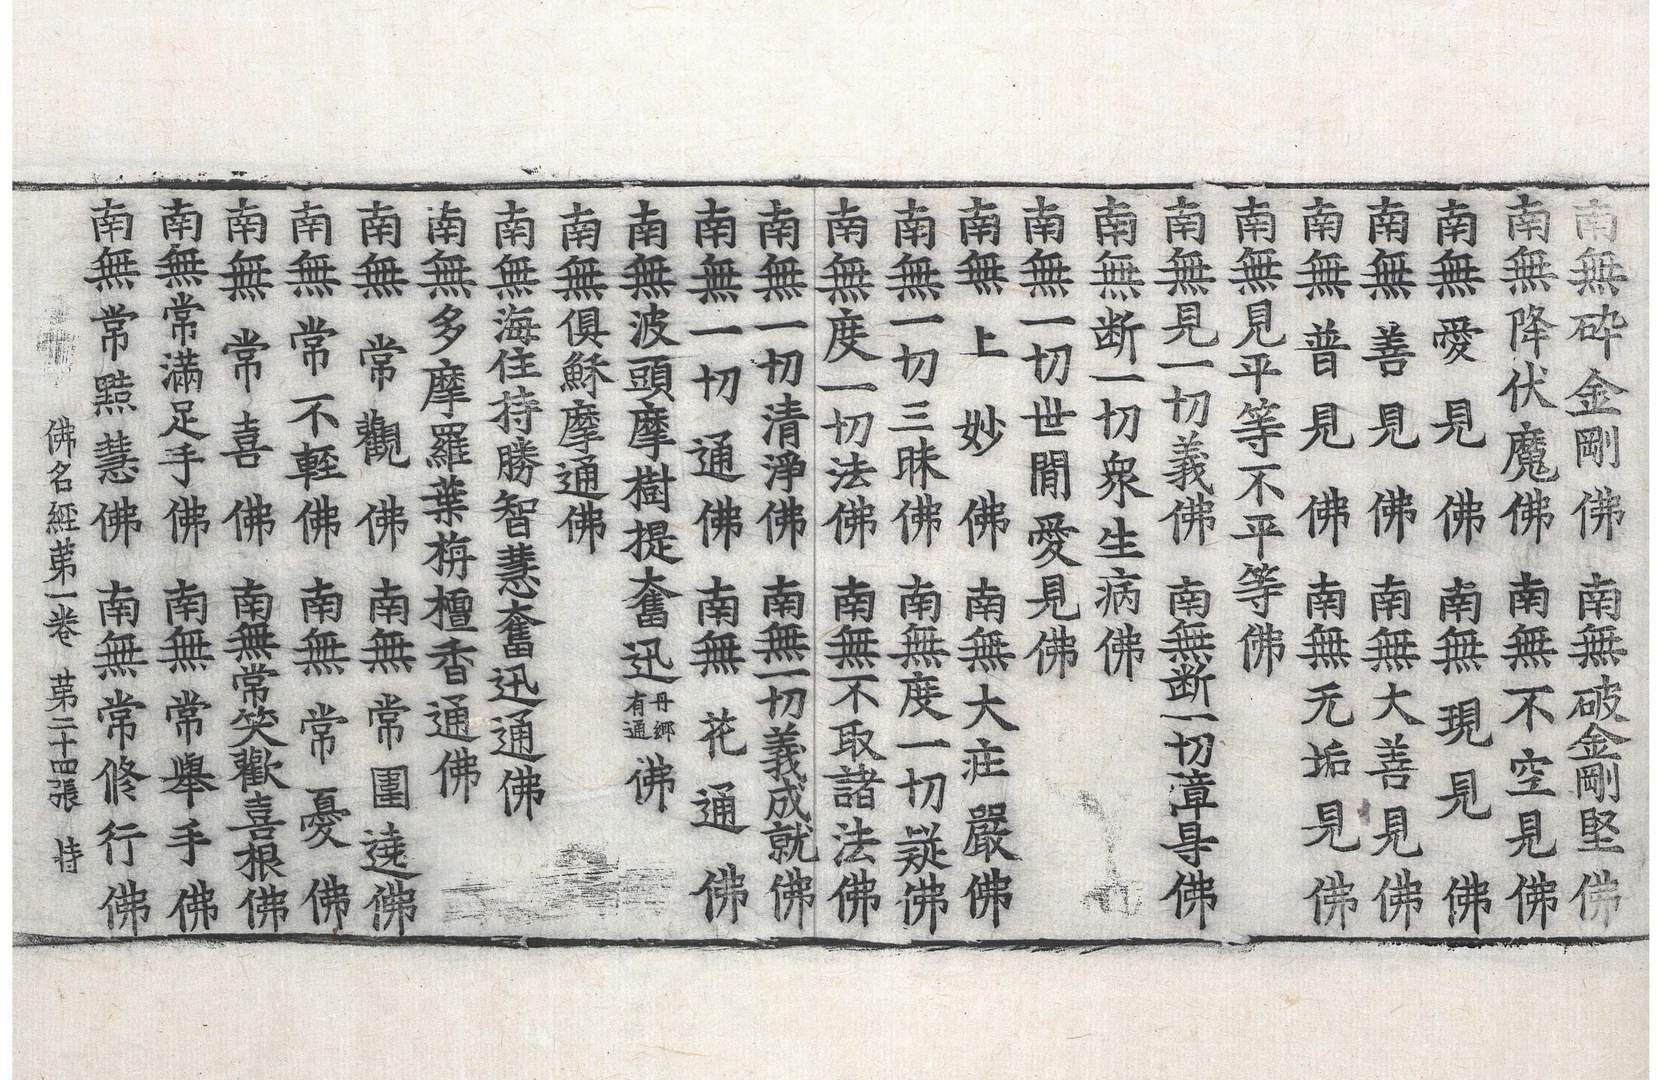 南無碎金剛佛 南無破金剛堅佛
南無降伏魔佛 南無不空見佛
南無愛見佛 南無現見佛
南無善見佛 南無大善見佛
南無普見佛 南無无垢見佛
南無見平等不平等佛
南無見一切義佛 南無断一切障㝵佛
南無断一切衆生病佛
南無一切世間愛見佛
南無上妙佛 南無大庄嚴佛
南無一切三昧佛 南無度一切疑佛
南無度一切法佛 南無不取諸法佛
南無一切清淨佛 南無一切義成就佛
南無一切通佛 南無花通佛
南無波頭摩樹提奮迅丹鄉有通佛
南無俱穌摩通佛
南無海住持勝智慧奮迅通佛
南無多摩羅葉栴檀香通佛
南無常觀佛 南無常圍遶佛
南無常不輕佛 南無常憂佛
南無常喜佛 南無常笑歡喜根佛
南無常滿足手佛 南無常舉手佛
南無常點慧佛 南無常修行佛
佛名經第一卷 第二十四張 恃